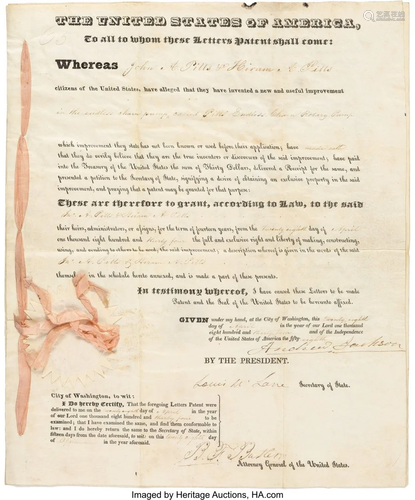 THE UNITED STATES OF AMERICA,
To all to whom these Letters Patent shall come:
Whereas John A Pitts & Hiram A Pitts
citizens of the United States, have alleged that they have invented a new and useful improvement
in the
which improvement they state has not been known or used before their application; have
that they do verily believe that they are the true inventors or discoverers of the said improvement; have paid
into the Treasury of the United States the sum of Thirty Dollars, delivered a Receipt for the same, and
presented a petition to the Secretary of State, signifying a desire of obtaining an exclusive property in the
said improvement, and praying that a patent may be granted for that purpose:
These are therefore to grant, according to Law, to the said
Pitts
their heirs, administrators, or assigns, for the term of fourteen years, from the twenty eighth day of April
one thousand eight hundred and the full and exclusive right and liberty of making, constructing,
using, and vending to others to be used, the said improvement; a description whereof is given in the words of the said
Pitts
themselves in the schedule hereto annexed, and is made a part of these presents.
In testimony whereof, I have caused these Letters to be made
Patent and the Seal of the United States to be hereunto affixed.
GIVEN under my hand, at the City of Washington, this twenty eighth
day of April in the year of our Lord one thousand
eight hundred and and of the Independence
of the United States of America the fifty
Andrew Jackson
BY THE PRESIDENT.
Louis McLane Secretary of State.
City of Washington, to wit:
I Do hereby Certify, That the foregoing Letters Patent
were delivered to me on the twenty eighth day of April in the year
of our Lord one thousand eight hundred and to be
examined; that I have examined the same, and find them conformable to
law; and I do hereby return the same to the Secretary of State, within
fifteen days from the date aforesaid, to wit: on this day of
aforesaid.
B. F. Butler
Attorney General of the United States.
Imaged by Heritage Auctions, HA.com